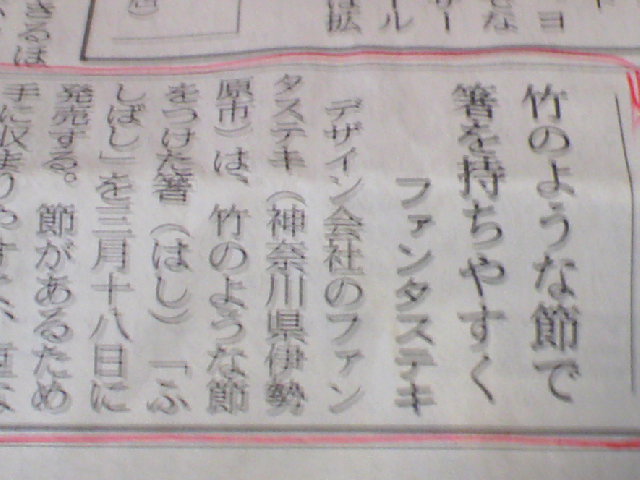 竹のような節で
箸を持ちやすく
ファンタステキ
デザイン会社のファン
タステキ（神奈川県伊勢
原市）は、竹のような節
をつけた箸（はし）「ふ
しばし」を三月十八日に
発売する。節があるため
手に収まりやすく、
きるほ